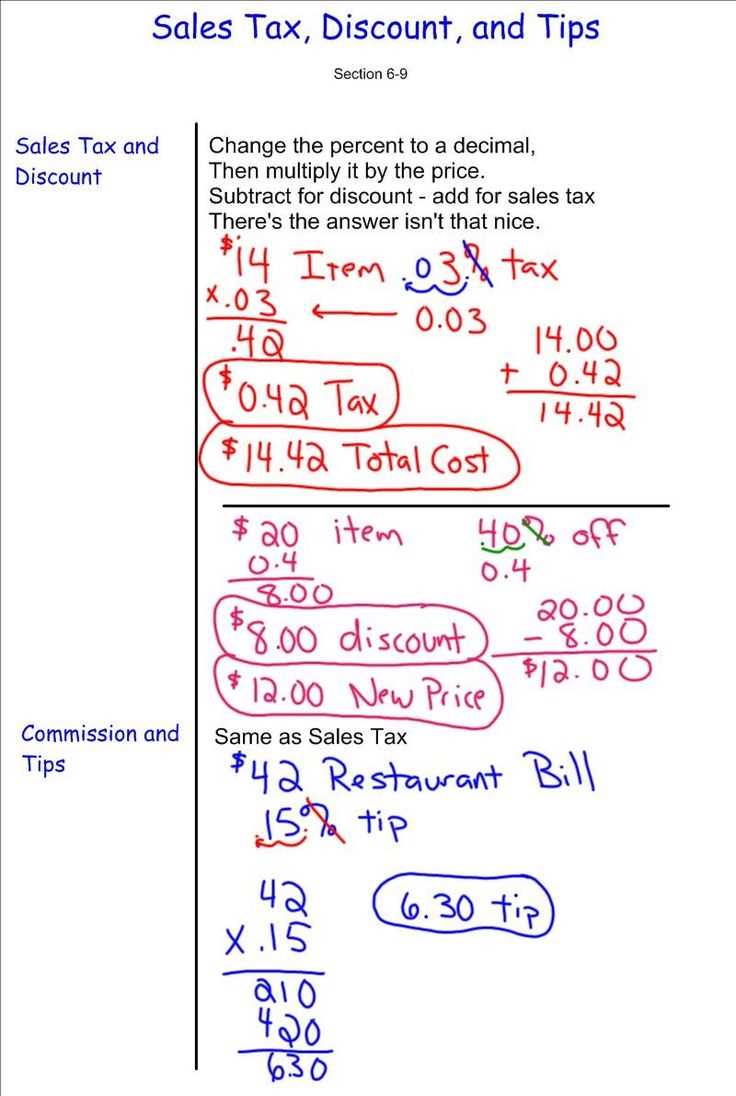 Sales Tax, Discount, and Tips
Section 6-9
Sales Tax and
Discount
Change the percent to a decimal,
Then multiply it by the price.
Subtract for discount - add for sales tax
There's the answer isn't that nice.
$14 Item .03.% tax
x.03 ← 0.03
.42
$0.42 Tax
14.00
+ 0.42
14.42
$14.42 Total Cost
$20 item 40% off
0.4 0.4
8.00
$8.00 discount
20.00
- 8.00
$12.00
$12.00 New Price
Commission and
Tips
Same as Sales Tax
$42 Restaurant Bill
.15.% tip
42
x .15
210
420
630
6.30 tip